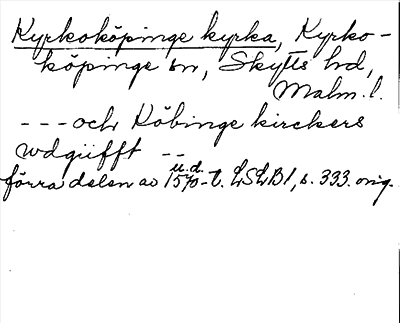 Kyrkoköpinge kyrka, Kyrko-
köpinge sn, Skytts hd,
Malm. l.
--- och Köbinge kirckers
wdgiifft --
u.d.
förra delen av 1570-t. LSLB 1, s. 333. orig.